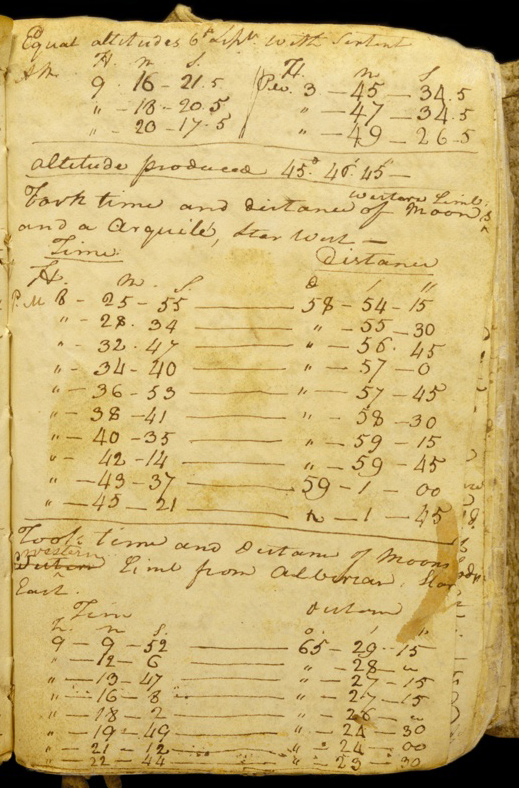 Equal altitudes 6th Sept. with Sextent
H. m S. H. m S
A M. 9 16 - 21.5 P.M. 3 - 45 - 34.5
" - 18 - 20.5 " - 47 - 34.5
" - 20 - 17.5 " - 49 - 26.5
altitude produced 45° 40' 45 —
Took time and distance of western Limb Moon,s
and a Arquile, Star West —
Time Distance
H. m. S. d ' "
P. M 8 - 25 - 55 58 - 54 - 15
" - 28. 34 " - 55 - 30
" - 32 - 47 " - 56. 45
" - 34 - 40 " - 57 - 0
" - 36 - 53 " - 57 - 45
" - 38 - 41 " - 58 - 30
" - 40 - 35 " - 59 - 15
" - 42 - 14 " - 59 - 45
" - 43 - 37 59 - 1 - 00
" - 45 - 21 " - 1 - 45
Took time and Distam of Moons
western Limb from Alberian, Star
East.
Time Distam
H. m S. d. ' "
9 - 9 - 52 65 - 29 - 15
" - 12 - 6 " - 28 - "
" - 13 - 47 " - 27 - 15
" - 16 - 8 " - 27 - 15
" - 18 - 2 " - 26 - "
" - 19 - 49 " - 24 - 30
" - 21 - 12 " - 24 - 00
" - 22 - 44 " - 23 - 30